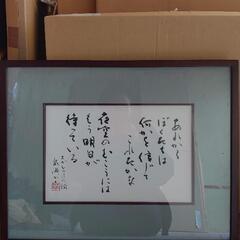 あれから
ぼくたちは
何かを信じて
これたかな
夜空のむこうには
もう明日が
待っている